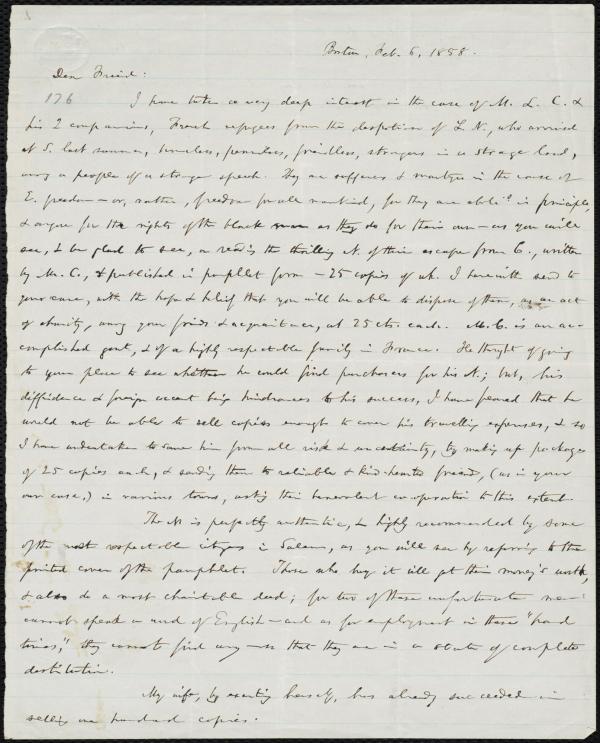 Boston, Feb. 6, 1858.
Dear Friend:
176 I have taken a very deep interest in the case of M. L. C. &
his 2 companions, French refugees from the despotism of L. N., who arrived
at S. last summer, homeless, penniless, friendless, strangers in a strange land,
among a people of a strange speech. They are sufferers & martyrs in the cause of
E. freedom — or, rather, freedom for all mankind, for they are in principle,
& argue for the rights of the black man as they do for their own — as you will
see, & be glad to see, in reading the thrilling N. of their escape from C., written
by M. C., & published in pamphlet form — 25 copies of wh. I herewith send to
your care, with the hope & belief that you will be able to dispose of them, as an act
of charity, among your friends & acquaintances, at 25 cts. each. M. C. is an ac-
complished gent., & of a highly respectable family in France. He thought of going
to your place to see whether he could find purchasers for his N.; but, his
diffidence & foreign accent being hindrances to his success, I have feared that he
would not be able to sell copies enough to cover his travelling expenses, & so
I have undertaken to save him from all risk & uncertainty, by making up packages
of 25 copies each, & sending them to reliable & kind-hearted friends, (as in your
own case,) in various towns, asking their benevolent co-operation to this extent.
The N. is perfectly authentic, & highly recommended by some
of the most respectable citizens in Salem, as you will see by referring to the
printed cover of the pamphlet. Those who buy it will get their money's worth,
& also do a most charitable deed; for two of these unfortunate men
cannot speak a word of English — and as for employment in these "hard
times," they cannot find any — so that they are in a state of complete
destitution.
My wife, by exerting herself, has already succeeded in
selling one hundred copies.